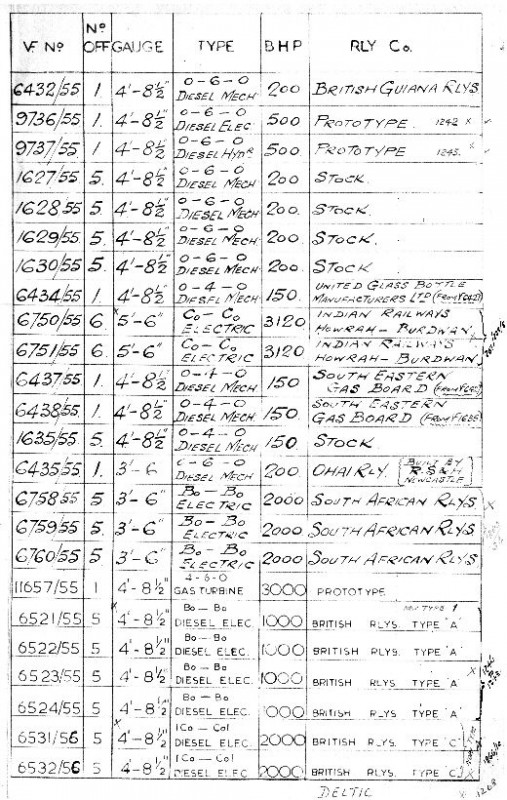 VF Nº Nº OFF GAUGE TYPE BHP RLY Co.
6432/55 1. 4'-8½" 0-6-0 DIESEL MECH 200 BRITISH GUIANA RLYS
9736/55 1. 4'-8½" 0-6-0 DIESEL ELEC. 500 PROTOTYPE. 1242 x
9737/55 1. 4'-8½" 0-6-0 DIESEL HYDR 500. PROTOTYPE. 1243. x
1627/55 5. 4'-8½" 0-6-0 DIESEL MECH 200 STOCK.
1628/55 5. 4'-8½" 0-6-0 DIESEL MECH 200. STOCK.
1629/55 5. 4'-8½" 0-6-0 DIESEL MECH 200. STOCK.
1630/55 5. 4'-8½" 0-6-0 DIESEL MECH 200. STOCK
6434/55 1. 4'-8½" 0-4-0 DIESEL MECH 150. UNITED GLASS BOTTLE MANUFACTURERS LTD
6750/55 6. 5'-6" Co-Co ELECTRIC 3120 INDIAN RAILWAYS HOWRAH-BURDWAN
6751/55 6. 5'-6" Co-Co ELECTRIC 3120 INDIAN RAILWAYS HOWRAH-BURDWAN
6437/55 1. 4'-8½" 0-4-0 DIESEL MECH 150 SOUTH EASTERN GAS BOARD
6438/55 1. 4'-8½" 0-4-0 DIESEL MECH 150. SOUTH EASTERN GAS BOARD
1635/55 5. 4'-8½" 0-4-0 DIESEL MECH 150 STOCK.
6435/55 1. 3'-6 0-6-0 DIESEL MECH 200. OHAI RLY. (BUILT BY R.S&H NEWCASTLE)
6758/55 5 3'-6" Bo-Bo ELECTRIC 2000 SOUTH AFRICAN RLYS
6759/55 5. 3'-6" Bo-Bo ELECTRIC 2000 SOUTH AFRICAN RLYS.
6760/55 5. 3'-6" Bo-Bo ELECTRIC 2000 SOUTH AFRICAN RLYS
11657/55 1 4'-8½" 4-6-0 GAS TURBINE 3000 PROTOTYPE
6521/55 5 4'-8½" Bo-Bo DIESEL ELEC. 1000 BRITISH RLYS. TYPE 'A'
6522/55 5 4'-8½" Bo-Bo DIESEL ELEC. 1000 BRITISH RLYS. TYPE 'A'
6523/55 5 4'-8½" Bo-Bo DIESEL ELEC. 1000 BRITISH RLYS. TYPE 'A'
6524/55 5 4'-8½" Bo-Bo DIESEL ELEC. 1000 BRITISH RLYS. TYPE 'A'
6531/56 5 4'-8½" 1Co-Co1 DIESEL ELEC. 2000 BRITISH RLYS. TYPE 'C'
6532/56 5 4'-8½" 1Co-Co1 DIESEL ELEC. 2000 BRITISH RLYS. TYPE 'C'
DELTIC x 1208